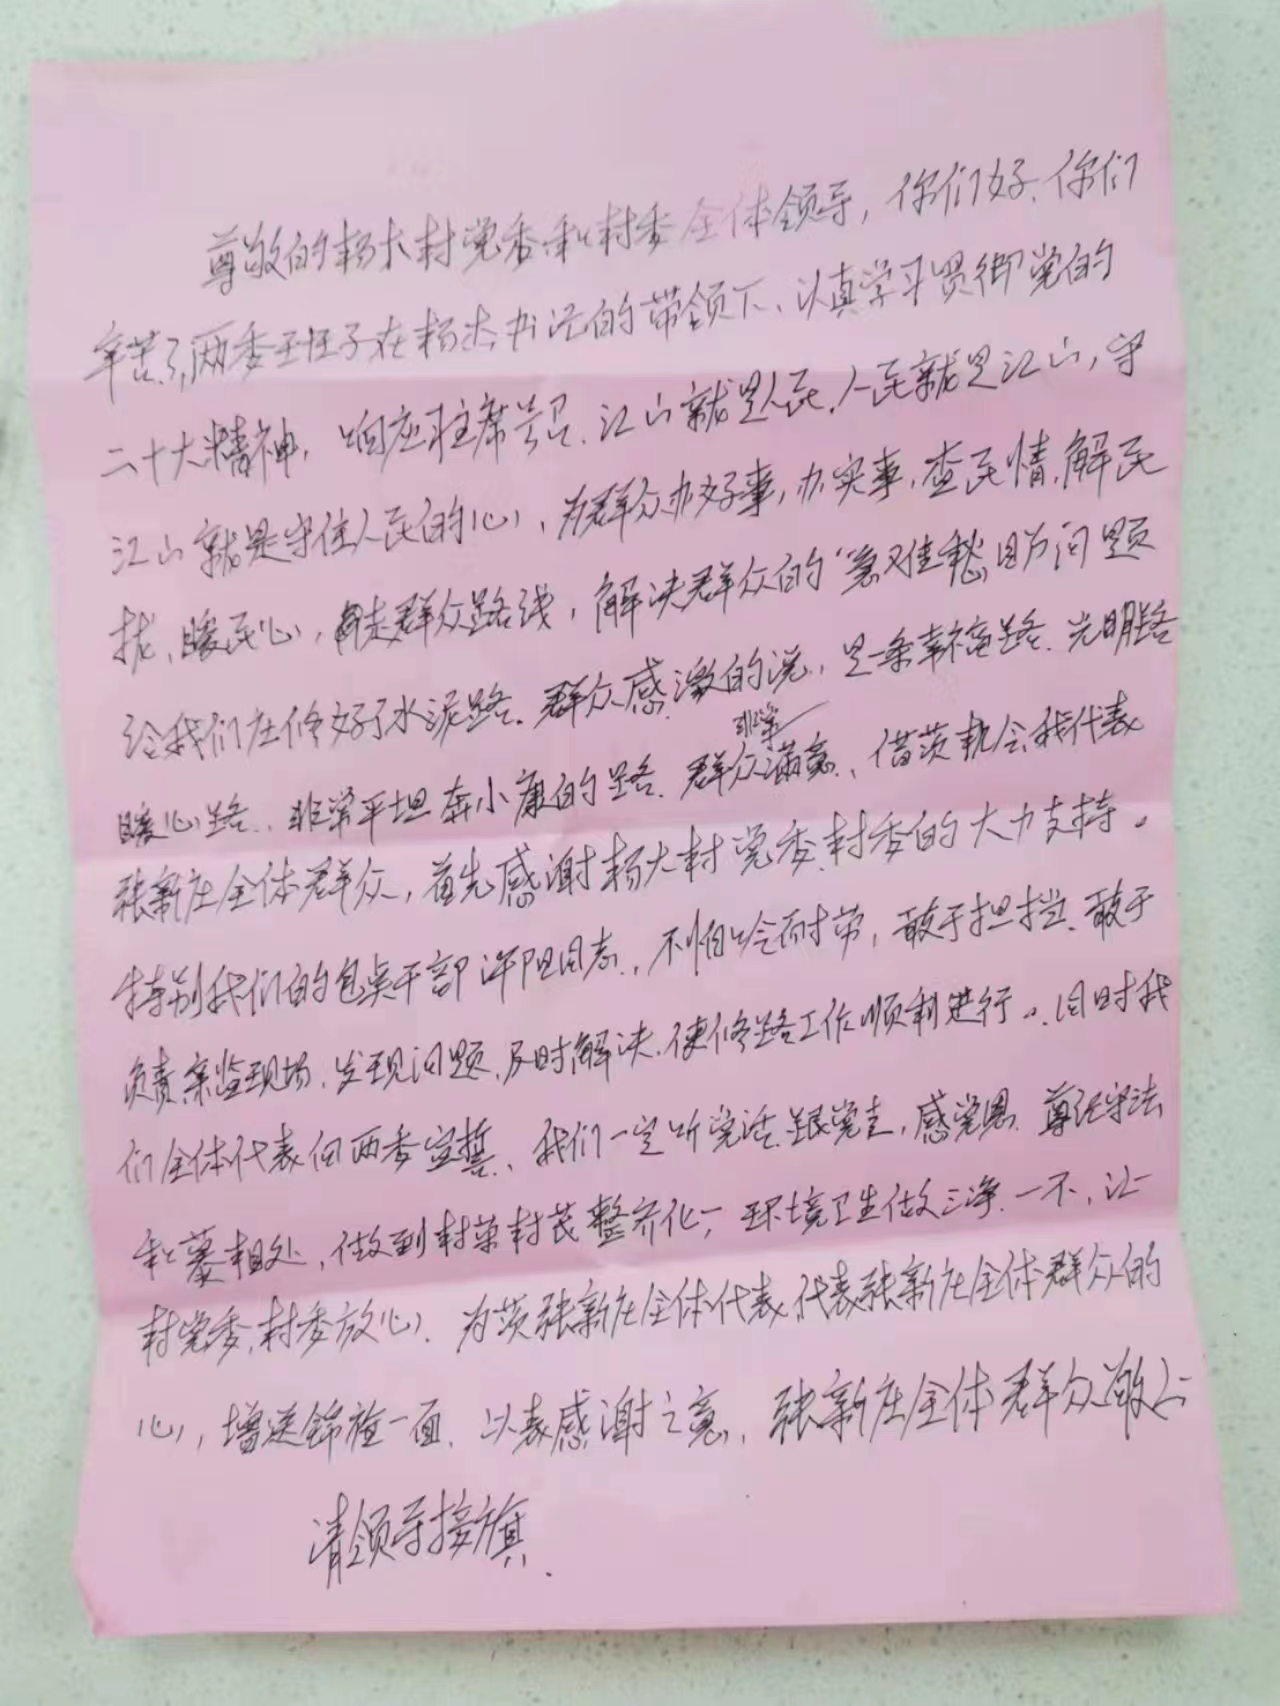 尊敬的杨木村党委和村委全体领导，你们好、你们
辛苦了，两委班子在杨杰书记的带领下、认真学习贯彻党的
二十大精神，响应习主席号召、江山就是人民，人民就是江山，守
江山就是守住人民的心、为群众办好事，办实事，查民情、解民
忧、暖民心，走群众路线，解决群众的“急难愁困”问题
给我们庄修好了水泥路。群众感激的说，是一条幸福路、光明路
暖心路、非常平坦奔小康的路、群众非常满意、借茨机会我代表
张新庄全体群众，首先感谢杨木村党委、村委的大力支持。
特别我们的包点干部许阳同志、不怕冷耐劳，敢于担挡、敢于
负责亲监现场、发现问题、及时解决、使修路工作顺利进行。同时我
们全体代表向两委宣誓、我们一定听党话、跟党走，感党恩、尊纪守法
和蔼相处，做到村荣村茂整齐化，环境卫生做三净、一不、让
村党委、村委放心、为茨张新庄全体代表代表张新庄全体群众的
心，增送锦旗一面、以表感谢之意、张新庄全体群众敬上
请领导接旗、